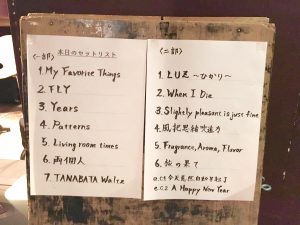 本日のセットリスト
〈一部〉
1. My Favorite Things
2. FLY
3. Years
4. Patterns
5. Living room times
6. 両個人
7. TANABATA Waltz
〈二部〉
1. LUZ ~ひかり~
2. When I Die
3. Slightly pleasant is just fine
4.
5. Fragrance, Aroma, Flavor
6. 旅の果て
e.c.1
e.c.2 A Happy New Year